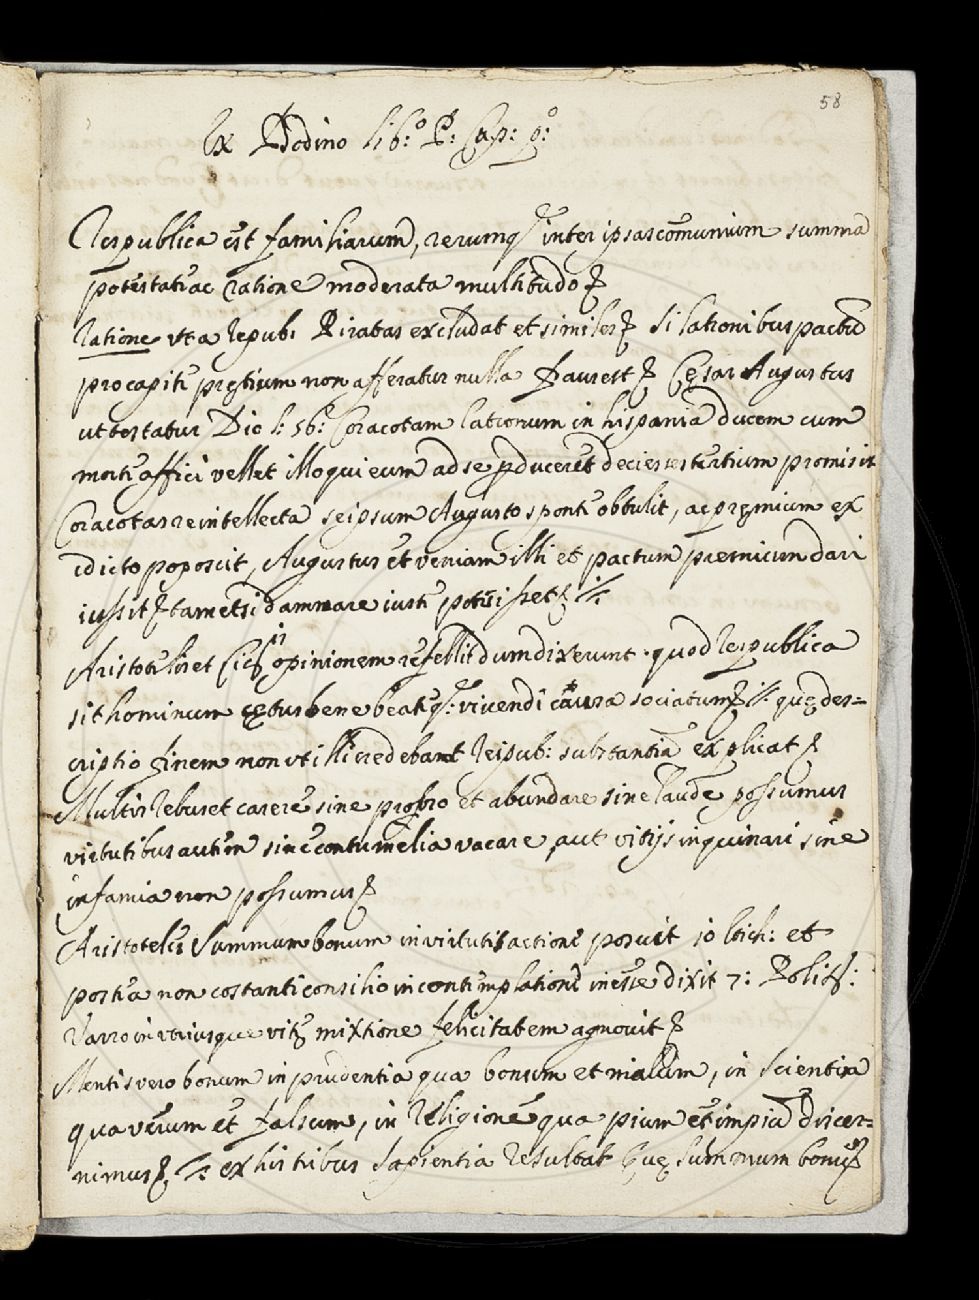 58
Ex Bodino lib:º P: Cap: pº:
Respublica est familiarum, rerumq' inter ipsas comunium summa
potestati ac ratione moderata multitudo
ratione ut a repub: Piratas excludat et similes Si latronibus pactum
pro capitis pretium non afferatur nulla fraus est Cęsar Augustus
ut testatur Dio l: 56: Coracotam latronum in hispania ducem cum
morti affici vellet illo qui eum ad se pduceret decies sestertium promisit
Coracotas re intellecta seipsum Augusto sponte obtulit, ac pręmium ex
edicto poposcit, Augustus et veniam illi et pactum premium dari
iussit tametsi damnare iuste potuisset
Aristotelis et Cic: opinionem refellit dum dixerunt quod respublica
sit hominum cętus bene beateq': vivendi causa sociatum quę des=
criptio finem non uti illi credebant Reipub: substantiã explicat
Multis rebus et carere sine probro et abundare sine laude possumus
virtutibus autem sine contumelia vacare aut vitijs inquinari sine
infamia non possumus
Aristoteles Summum bonum in virtutis actione posuit 10 Etich: et
postea non costanti consilio in contemplatione inesse dixit 7: Polit:
Varro in utriusque vitę mixtione felicitatem agnovit
Mentis vero bonum in prudentia qua bonum et malum, in scientia
qua verum et falsum, in religione qua pium et impiũ discer=
nimus ex his tribus sapientia resultat quę summum bonũ